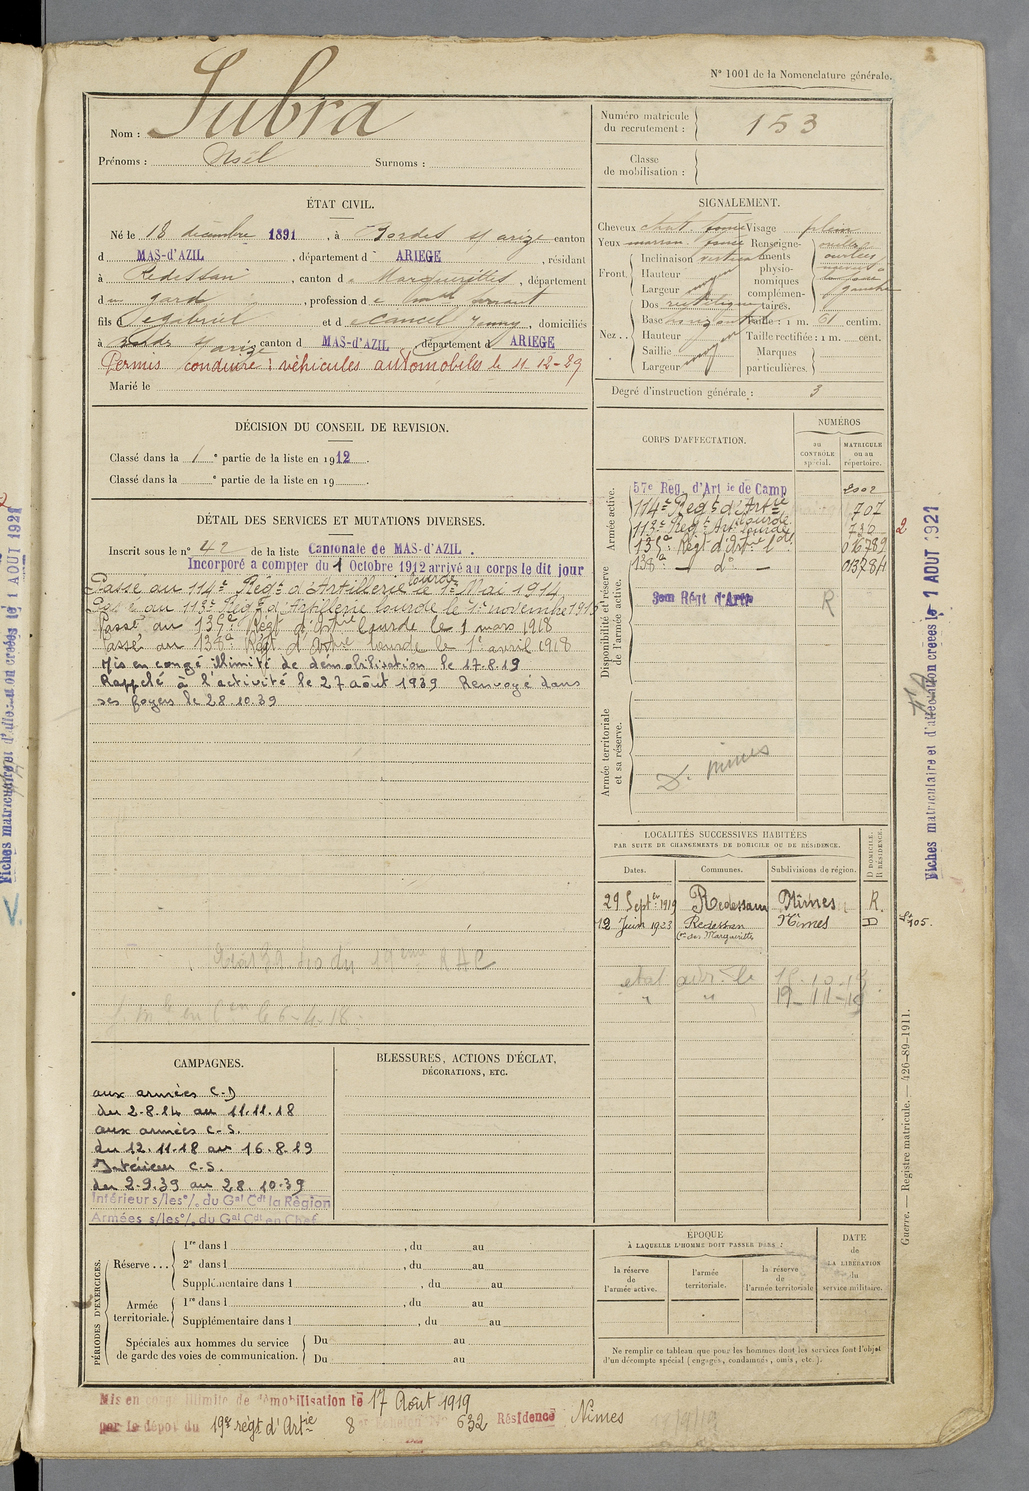 N° 1001 de la Nomenclature générale.
Nom : Subra
Prénoms : Noël Surnoms :
Numéro matricule du recrutement : 153
Classe de mobilisation :
ÉTAT CIVIL.
Né le 18 décembre 1891, à Bordes s/ arize canton
d MAS-d'AZIL, département d ARIEGE, résidant
à Rédessan, canton de Marguerittes, département
du gard, profession d
fils de gabriel et de Cancel Jenny, domiciliés
à Bordes s/ arize canton d MAS-d'AZIL, département d ARIEGE
Permis conduire : véhicules automobiles le 11-12-29
Marié le
SIGNALEMENT.
Cheveux chat. foncé Visage plein
Yeux marron foncé
Front. Inclinaison verticale
Hauteur moy
Largeur
Nez .. Dos rectiligne
Base horizontale
Hauteur moy
Saillie
Largeur
Renseignements physionomiques complémentaires. oreilles ourlées gauche
Taille : 1 m. 61 centim.
Taille rectifiée : 1 m. cent.
Marques particulières.
Degré d'instruction générale : 3
DÉCISION DU CONSEIL DE REVISION.
Classé dans la 1e partie de la liste en 1912.
Classé dans la e partie de la liste en 19 .
DÉTAIL DES SERVICES ET MUTATIONS DIVERSES.
Inscrit sous le n° 42 de la liste Cantonale de MAS-d'AZIL.
Incorporé a compter du 1 Octobre 1912 arrivé au corps le dit jour
Passé au 114e Régt d'Artillerie lourde le 1er Mai 1914
Passé au 113e Régt d'Artillerie lourde le 1er novembre 1915
Passé au 135e Régt d'Artie lourde le 1 mars 1918
Passé au 138e Régt d'Artie lourde le 1er avril 1918
Mis en congé illimité de démobilisation le 17.8.19
Rappelé à l'activité le 27 août 1939 Renvoyé dans
ses foyers le 28.10.39
CORPS D'AFFECTATION.
NUMÉROS
au CONTRÔLE spécial.
MATRICULE ou au répertoire.
Armée active.
57e Reg. d'Artie de Camp 2002
114e Régt d'Artie lourde 707
113e Régt Artie lourde 736
135e Régt d'Artie lde 016789
138e — do — 03784
Disponibilité et réserve de l'armée active.
Régt d'Artie R
Armée territoriale et sa réserve.
D. Nimes
LOCALITÉS SUCCESSIVES HABITÉES
PAR SUITE DE CHANGEMENTS DE DOMICILE OU DE RÉSIDENCE.
Dates. Communes. Subdivisions de région. D DOMICILE. R RÉSIDENCE.
29 Septbre 1919 Redessan Nîmes R.
12 Juin 1923 Redessan Nîmes D
Con des Marguerittes
105.
état le 15-10-18
" " 19-11-18
du 19ème RAC
le 6-4-18
CAMPAGNES.
aux armées C-D
du 2-8-14 au 11.11.18
aux armées C-S.
du 12.11.18 au 16.8.19
Intérieur C.S.
du 2-9.39 au 28.10.39
Intérieur s/les o/. du Gal Cdt la Région
Armées s/les o/. du Gal Cdt en Chef
BLESSURES, ACTIONS D'ÉCLAT,
DÉCORATIONS, ETC.
PÉRIODES D'EXERCICES.
Réserve ... 1re dans l , du au
2e dans l , du au
Supplémentaire dans l , du au
Armée territoriale. 1re dans l , du au
Supplémentaire dans l , du au
Spéciales aux hommes du service de garde des voies de communication. Du au
Du au
ÉPOQUE
À LAQUELLE L'HOMME DOIT PASSER DANS :
la réserve de l'armée active.
l'armée territoriale.
la réserve de l'armée territoriale
DATE de LA LIBÉRATION du service militaire.
Ne remplir ce tableau que pour les hommes dont les services font l'objet
d'un décompte spécial (engagés, condamnés, omis, etc.).
Guerre. — Registre matricule. — 426-89-1911.
Fiches matriculaire et d'affectation créées le 1 AOUT 1921
Fiches matriculaire et d'affectation créées le 1 AOUT 1921
2
Mis en congé illimité de démobilisation le 17 Août 1919
par le dépôt du 19e régt d'Artie 8 echelon No 632 Résidence Nimes